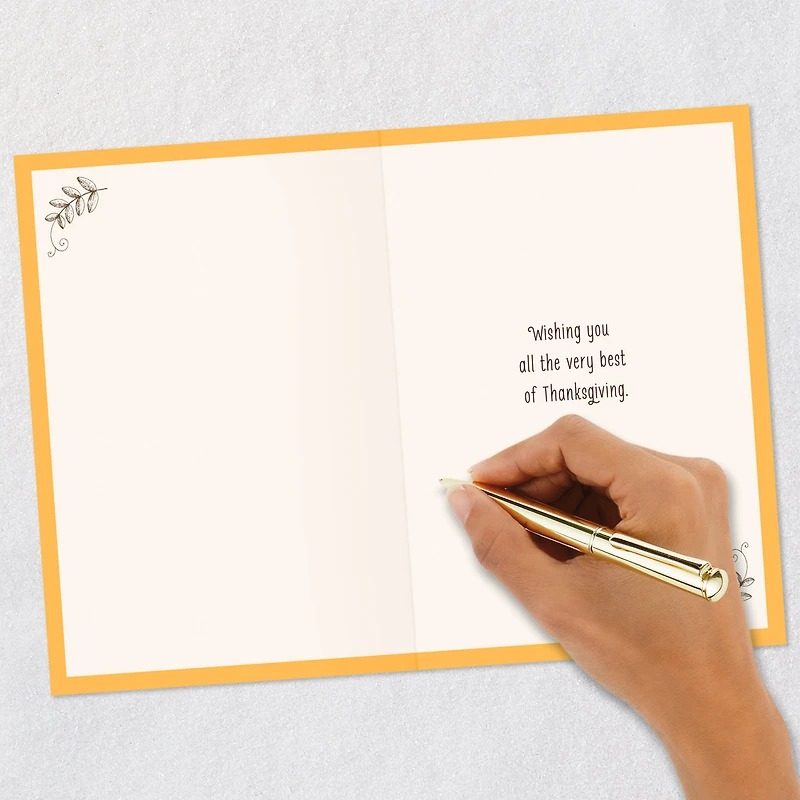 Wishing you
all the very best
of Thanksgiving.